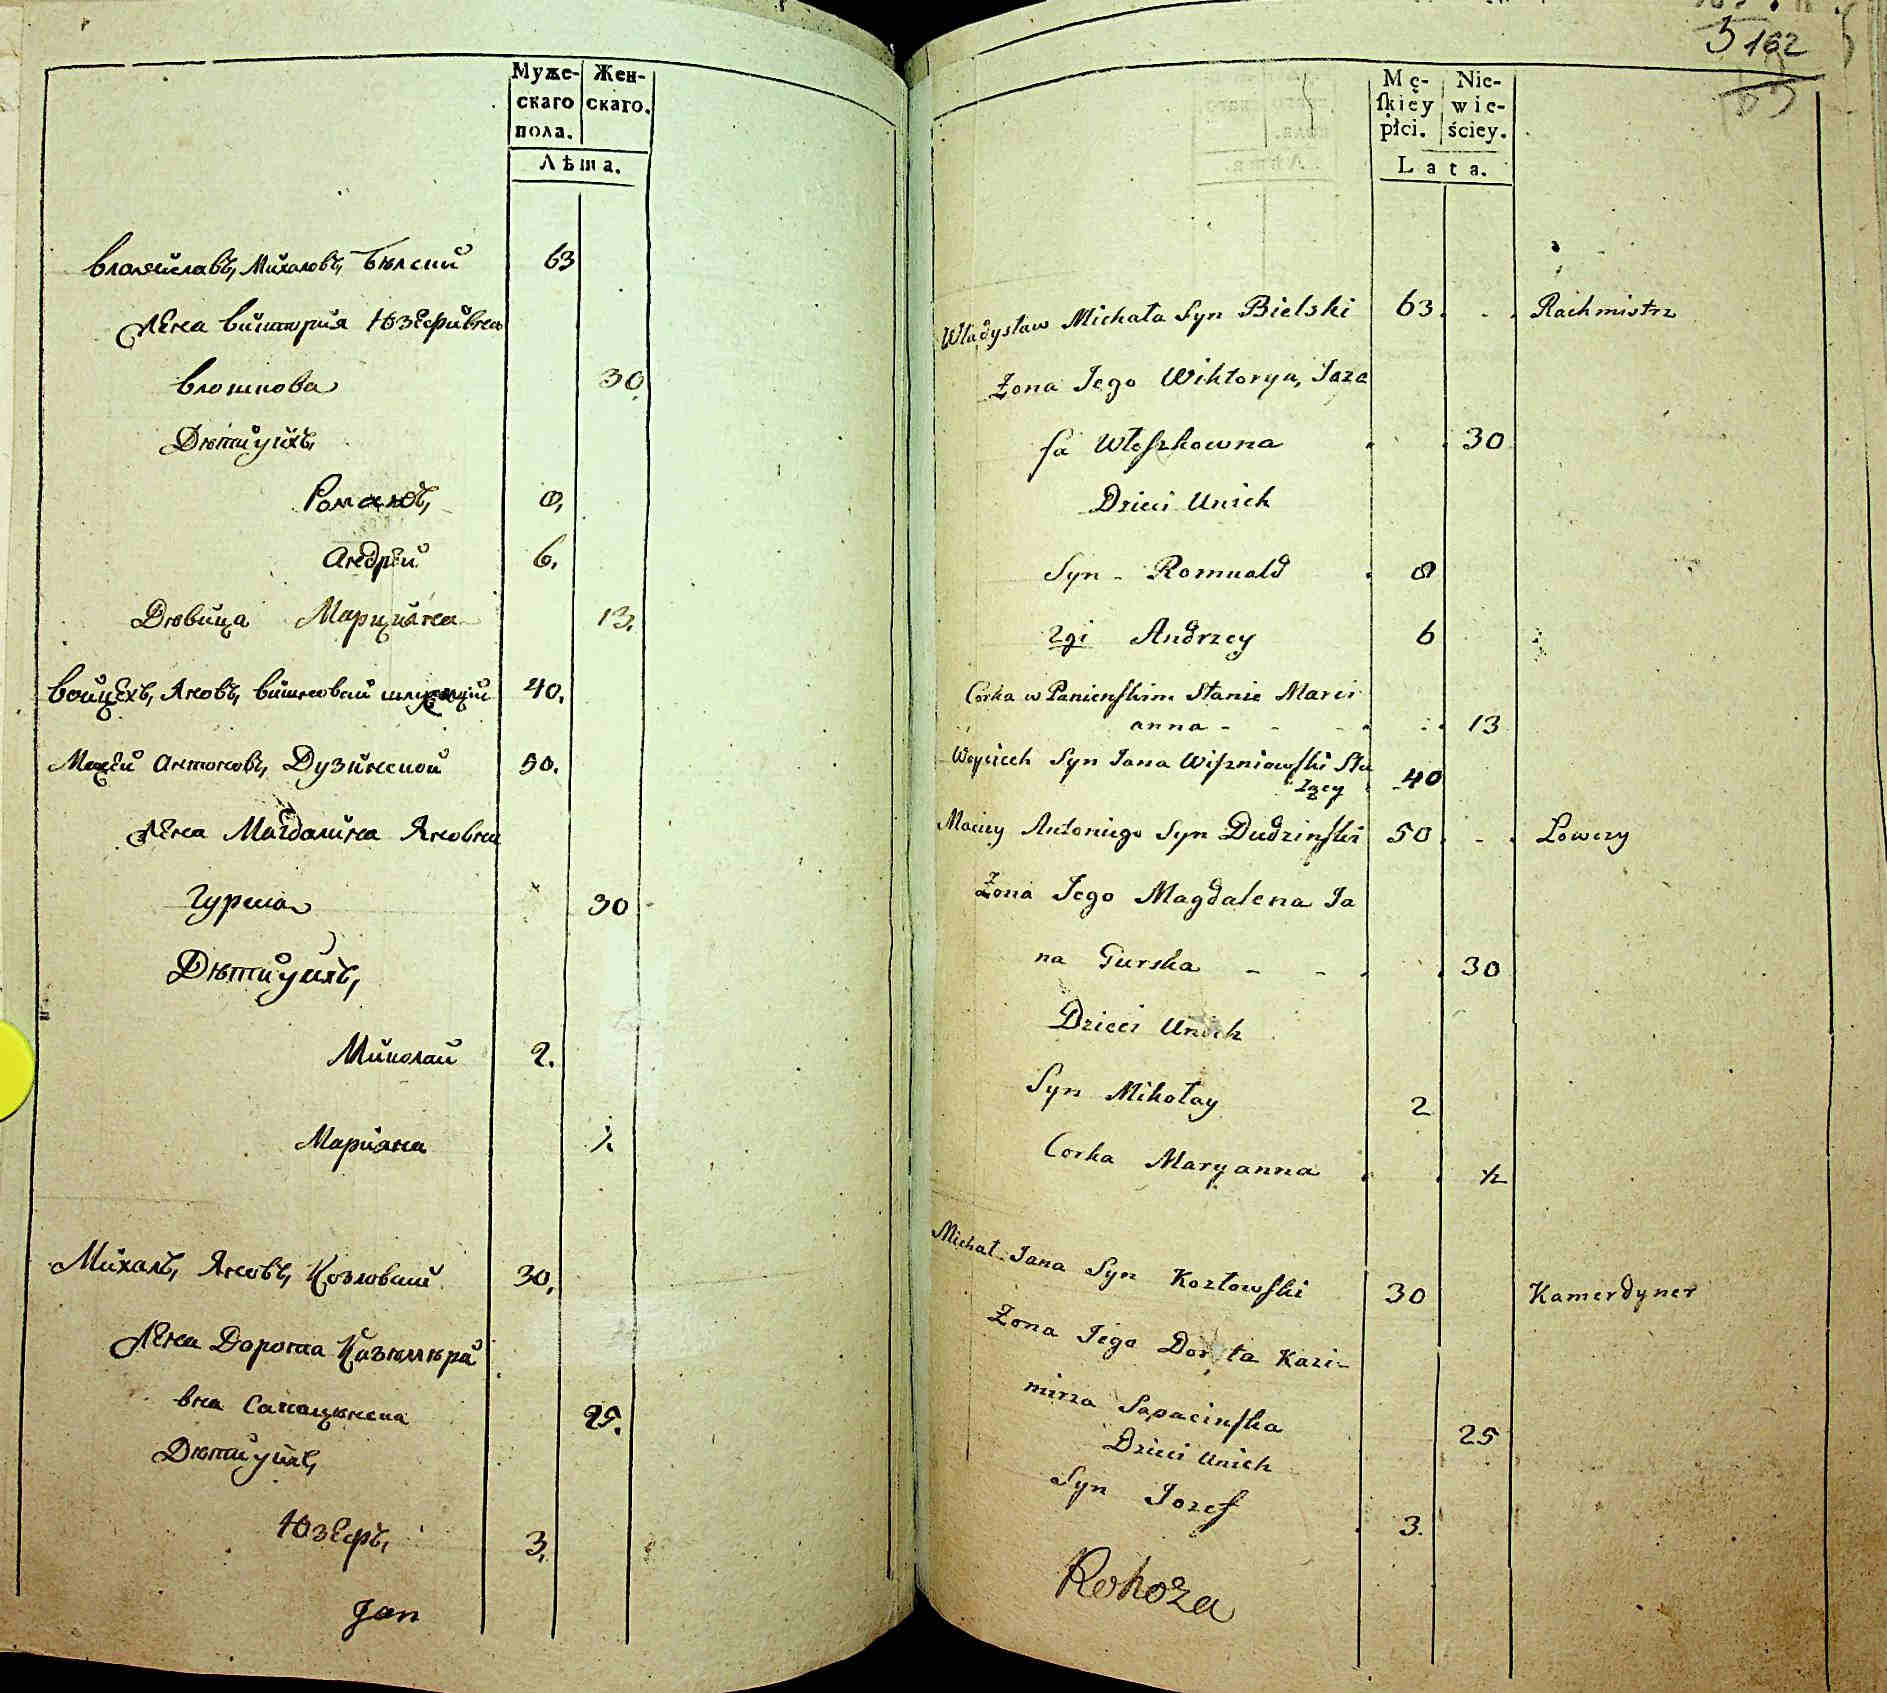 Муже- Жен-
скаго скаго.
пола.
Лѣта.
Владиславъ, Михаловъ, Бѣлский 63
Жена Виктория Юзефивна
Влошкова 30
Дѣти у ихъ,
8,
Андрей 6.
Дѣвица Марцияна 13.
Войцехъ, Яновъ, Вишневский 40.
Мацей Антоновъ, Дузинской 50.
Жена Магдалина Яновна
Гурска 30
Дѣти у ихъ,
Миколай 2.
Марияна ½
Михалъ, Яновъ, Козловский 30,
Жена Дорота Казимира
вна 25.
Дѣти у ихъ,
Юзефъ, 3,
Jan
5 162
Mę- Nie-
ſkiey wie-
płci. ściey.
Lata.
Władysław Michała Syn Bielski 63. Rachmistrz
Zona Jego Wiktorya, Joze
fa Włeſzkowna 30
Dzieci Unich
Syn - Romuald 8
2gi Andrzey 6
Corka w Panienſkim Stanie Marci
anna - 13
Woyciech Syn Jana Wiſzniowſki Słu
zący 40
Maciey Antoniego Syn Dudzinſki 50 Lowczy
Zona Jego Magdalena Ja
na Gurska - - 30
Dzieci Unich
Syn Mikołay 2
Corka Maryanna ½
Michał Jana Syn Kozłowſki 30 Kamerdyner
Zona Jego Dorota Kazi-
mirza Sapacinſka 25
Dzieci Unich
Syn Jozef 3.
Rohoza